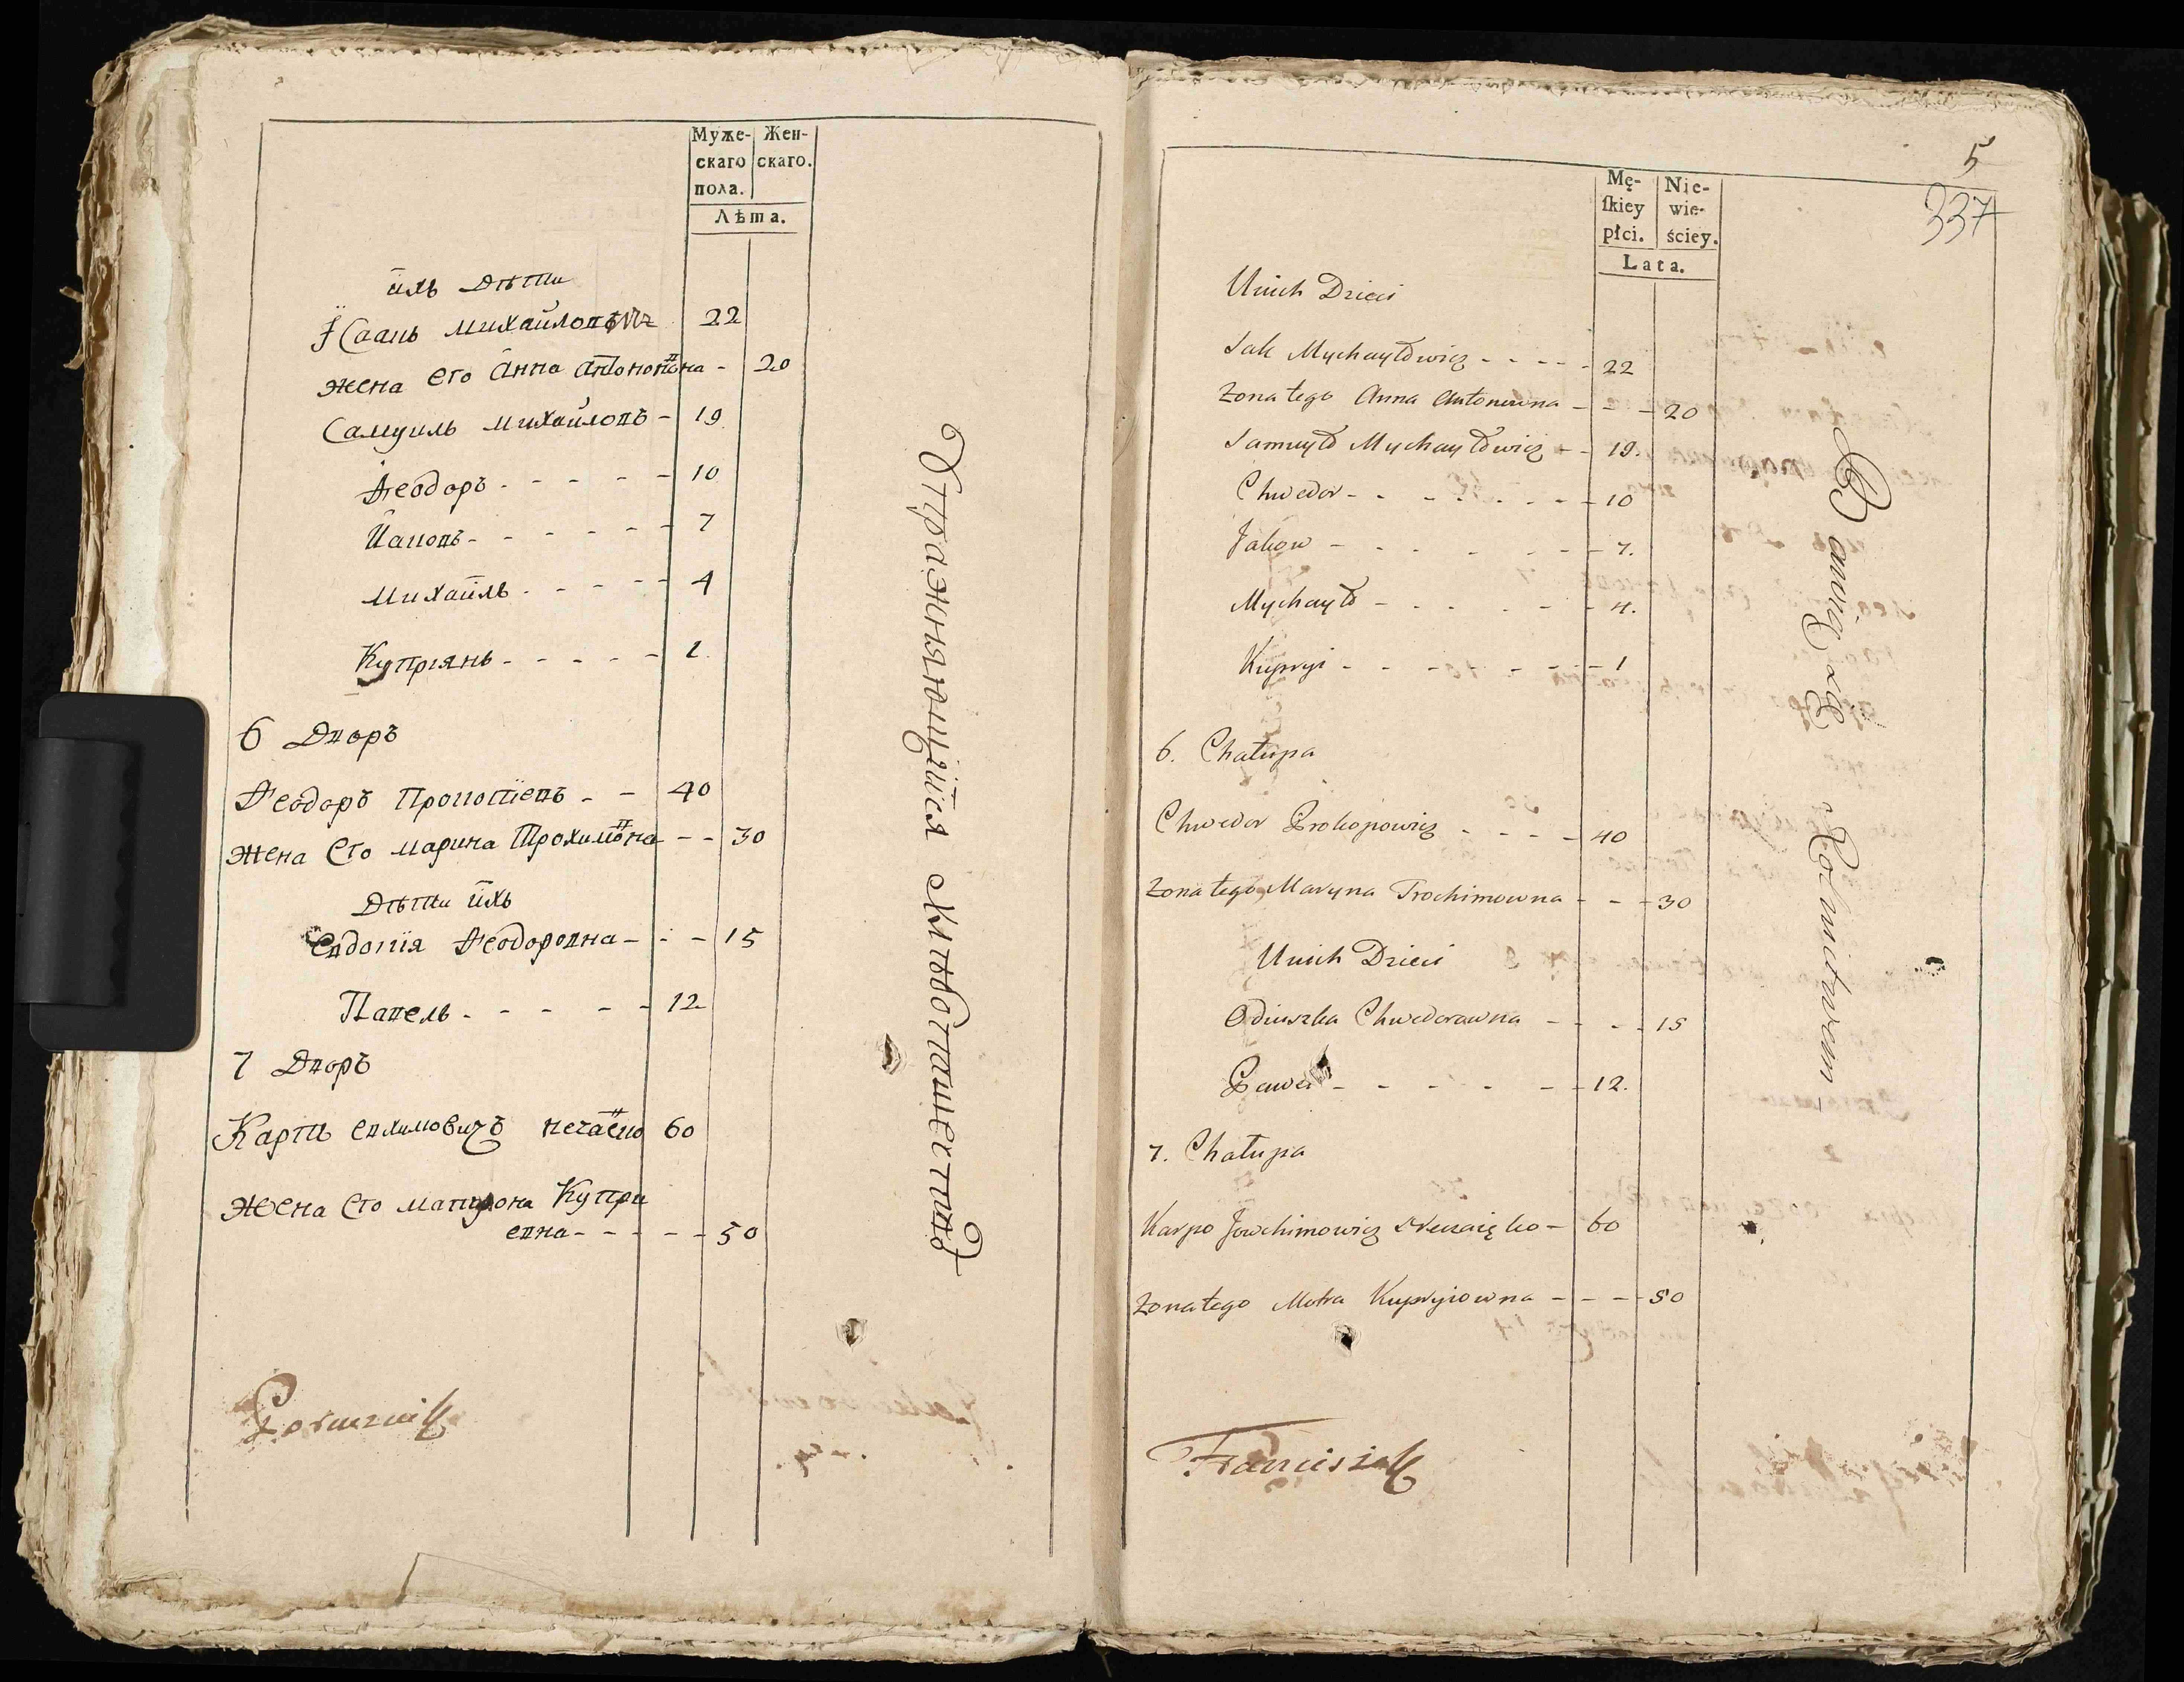 Муже-
скаго
пола.
Жен-
скаго.
Лѣта.
ихъ Дѣти
Ісаакъ Михаиловъ 22
жена его Анна Антоновъна - 20
Самуилъ Михаиловъ - 19
Ѳеодоръ - - - - - 10
Иаковъ - - - - - - 7
Михаилъ - - - - - 4
Купріянъ - - - - - 1
6 Дворъ
Ѳеодоръ Прокопіевъ - - 40
жена его Марина Трохимовна - - 30
Дѣти ихъ
Евдокія Ѳеодоровна - - - 15
Павелъ - - - - - 12
7 Дворъ
Карпъ Евхимовичъ Нечаенко 60
жена его Матрона Купри
евна - - - - - 50
Упражняющійся Хлѣбопашествомъ
5
337
Mę-
ſkiey
płci.
Nie-
wie-
ściey.
Lata.
U nich Dzieci
Sak Mychayłowicz - - - - 22
Zona tego Anna Antonowna - - - 20
Samuyło Mychayłowicz - - 19.
Chwedor - - - - - - - 10
Jakow - - - - - - - 7.
Mychayło - - - - - - 4.
Kupryi - - - - - - - 1
6. Chałupa
Chwedor Prokopowicz - - - - 40
Zona tego Maryna Trochimowna - - - 30
U nich Dzieci
Oduszka Chwedorowna - - - 15
Paweł - - - - - - 12.
7. Chałupa
Karpo Jowchimowicz Neczaięko - 60
Zona tego Motra Kupryiowna - - - - 50
Bawią Się Rolnictwem
Franciszek